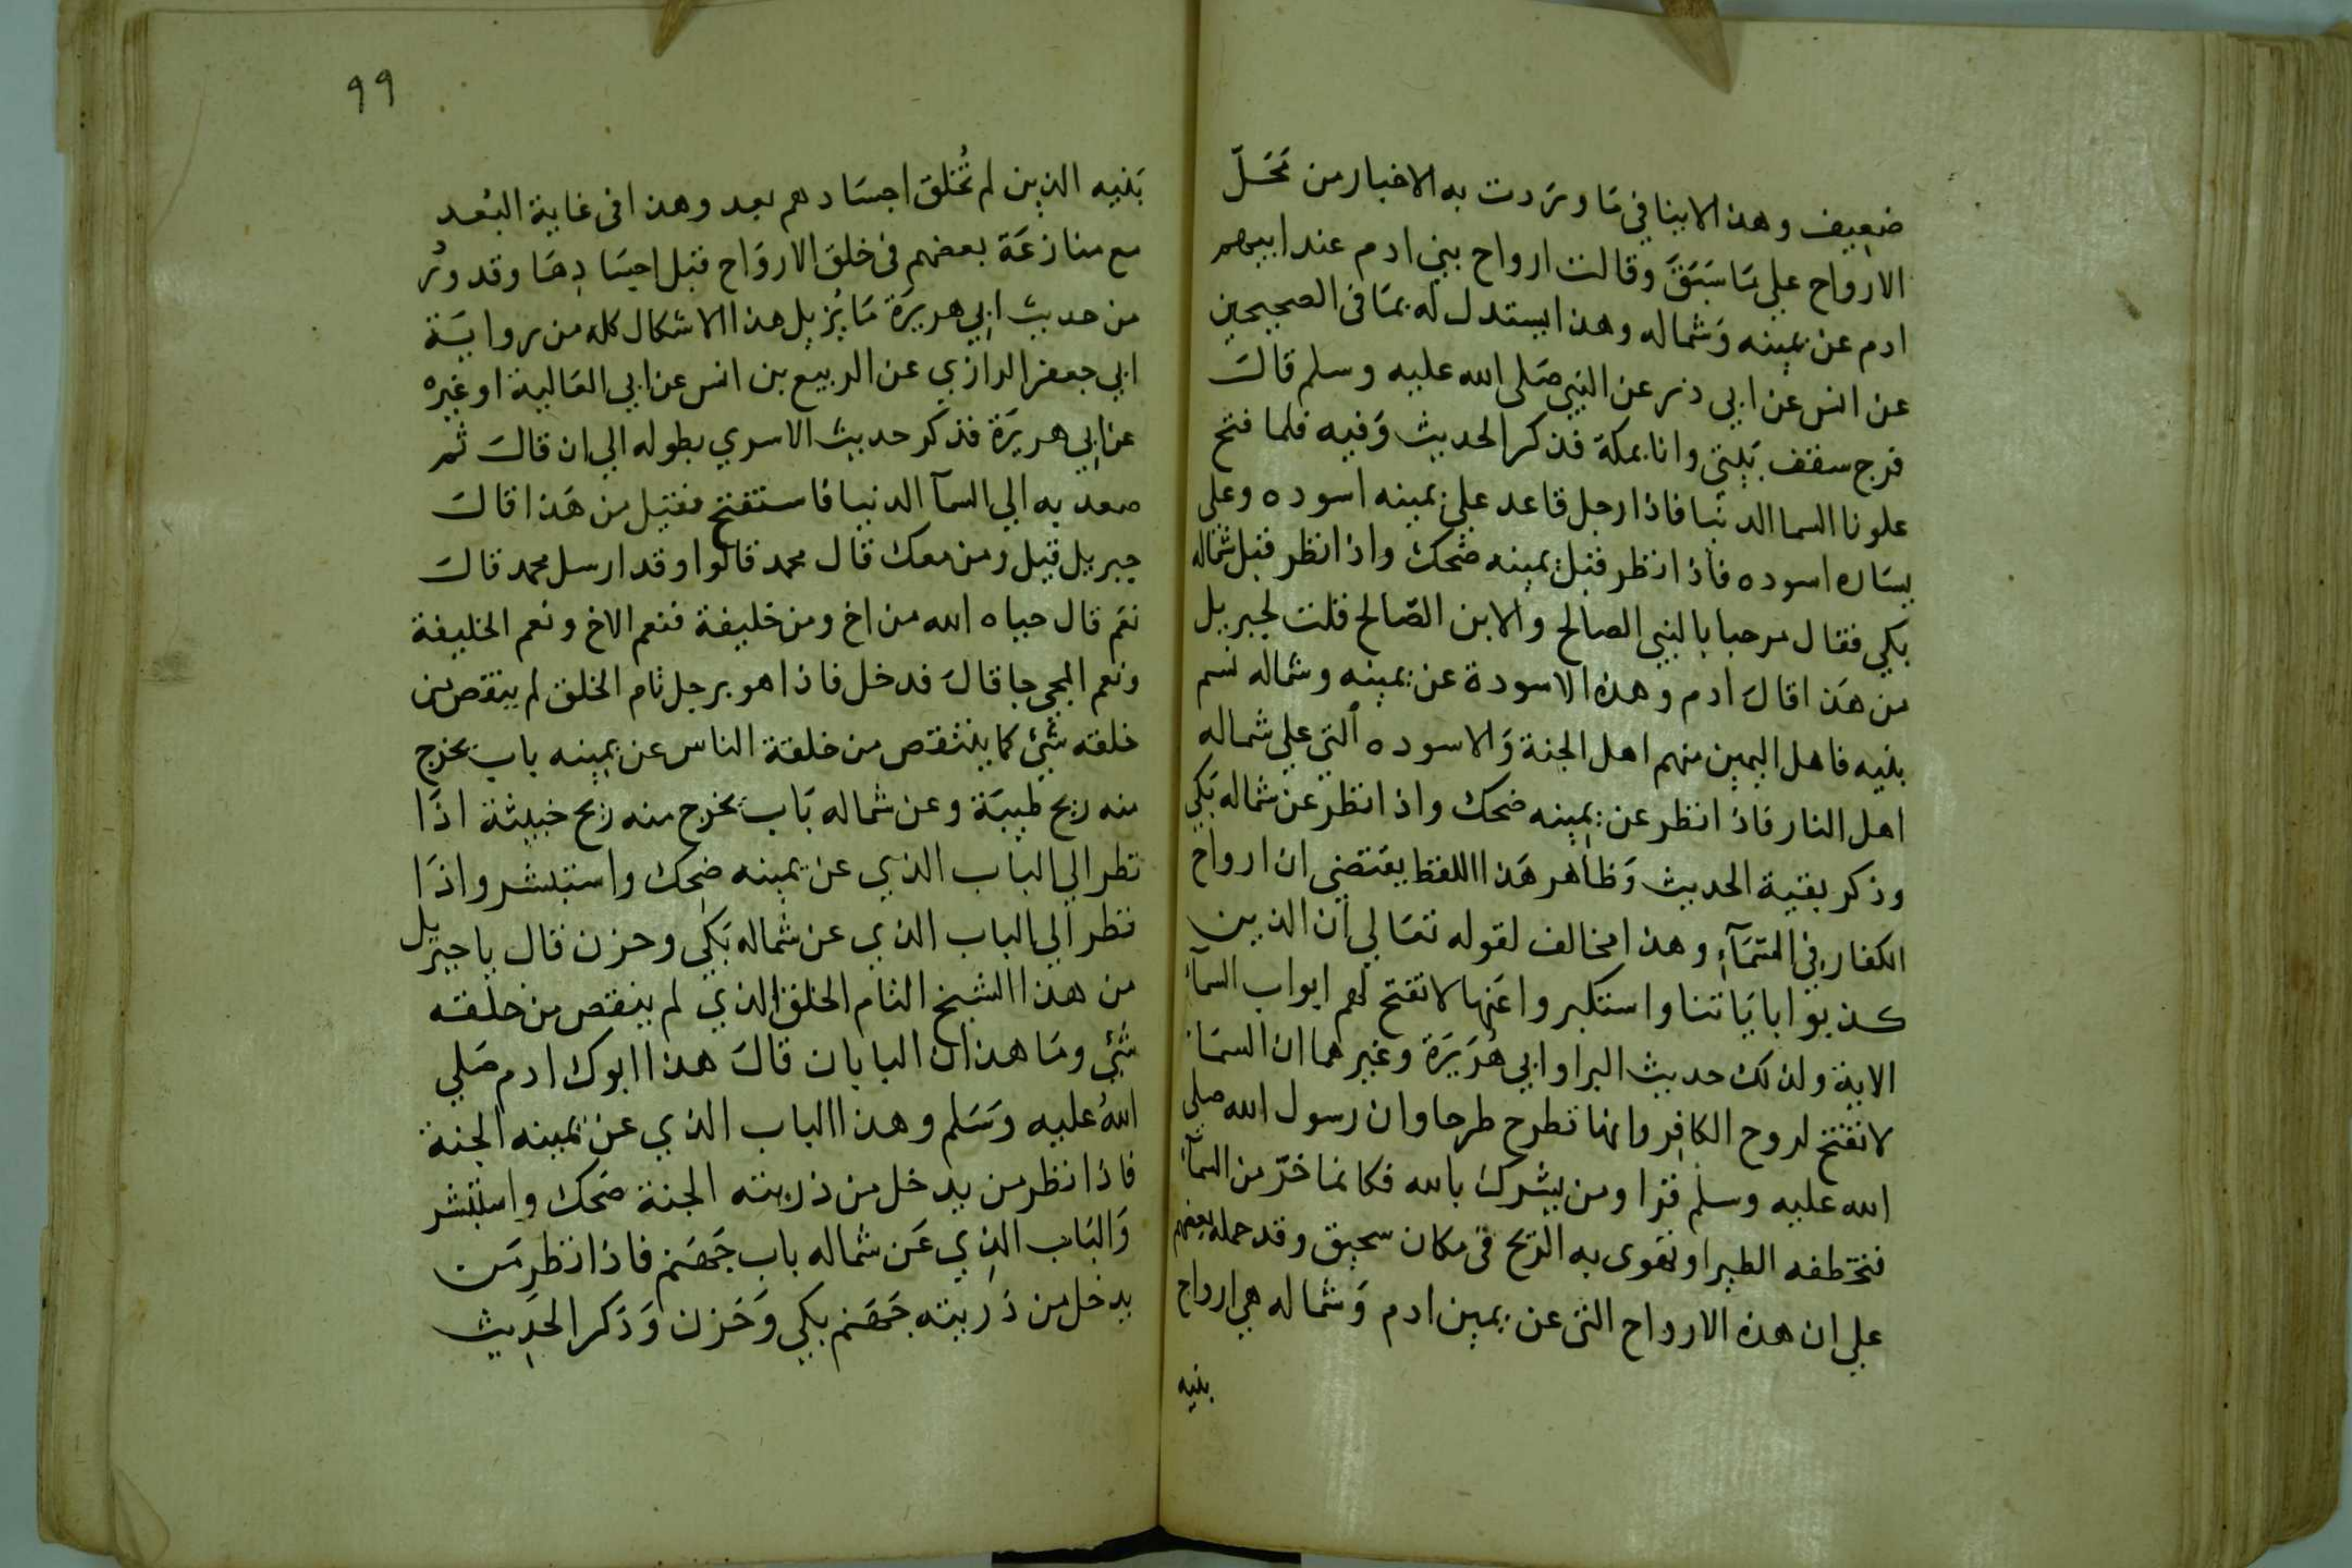 ضعيف وهذا لا ينافي ما وردت به الاخبار من محل
الارواح علي ما سبق وقالت ارواح بني ادم عند ابيهم
ادم عن يمينه وشماله وهذا يستدل له بما في الصحيحين
عن انس عن ابي ذر عن النبي صلى الله عليه وسلم قال
فرج سقف بيتي وانا بمكة فذكر الحديث وفيه فلما فتح
علونا السما الدنيا فاذا رجل قاعد علي يمينه اسوده وعلي
يساره اسوده فاذا نظر قبل يمينه ضحك واذا نظر قبل شماله
بكي فقال مرحبا بالنبي الصالح والابن الصّالح قلت لجبريل
من هذا قال ادم وهذه الاسودة عن يمينه وشماله نسم
بنيه فاهل اليمين منهم اهل الجنة والاسوده التي علي شماله
اهل النار فاذا نظر عن يمينه ضحك واذا نظر عن شماله بكي
وذكر بقية الحديث وظاهر هذا اللفظ يقتضي ان ارواح
الكفار في السّمآء وهذا مخالف لقوله تعالي ان الذين
كذبوا باياتنا واستكبروا عنها لا تفتح لهم ابواب السمآء
الاية ولذلك حديث البرا وابي هُريَرَة وغيرهما ان السما
لا تفتح لروح الكافِر وانها تطرح طرحا وان رسول الله صلي
الله عليه وسلم قرا ومن يشرك بالله فكانما خرّ من السمآء
فتخطفه الطير او تهوى به الريح في مكان سحيق وقد حمله بعضهم
علي ان هذه الارواح التي عن يمين ادم وشماله هي ارواح
بنيه
٩٩
بَنيه الذين لم تُخلق اجسَادهم بعد وهذا في غاية البُعد
مع منازعَة بعضهم في خلق الاروَاح قبل اجسَادِهَا وقد ورُ
من حديث ابي هريرَة مَا يُزيل هذا الاشكال كله من روايَة
ابي جعفر الرازي عن الربيع بن انس عن ابي العَالية او غيره
عن ابي هريرَة فذكر حديث الاسري بطوله الي ان قالَ ثم
صعد به الي السمآ الدنيا فاستفتح فقيل من هَذا قالَ
جبريل قيل ومن معك قال محمد قالوا وقد ارسل محمد قالَ
نعَم قال حياه الله من اخ ومن خليفة فنعم الاخ ونعم الخليفة
ونعم المجي جا قالَ فدخل فاذا هو برجل تام الخلق لم ينقص من
خلقه شيئ كما ينتقص من خلقة الناس عن يمينه باب يخرج
منه ريح طيبَة وعن شماله بَاب يخرج منه ريح خبيثة اذَا
نظر الي الباب الذي عن يمينه ضحك واستبشر واذَا
نظر الي الباب الذي عن شماله بَكي وحزن قال ياجبريل
من هذا الشيخ التام الخلق الذي لم ينقص من خلقه
شئي ومَا هذان البابان قالَ هذا ابوك ادم صَلي
اللهُ عليه وسَلم وهذا الباب الذي عن يمينه الجنة
فاذا نظر من يدخل من ذريته الجنة ضحك واستبشر
وَالبَاب الذِي عَن شماله باب جَهنم فاذا نظر مَن
يدخل من ذريته جَهَنم بكي وَحَزن وَذكر الحَدِيث